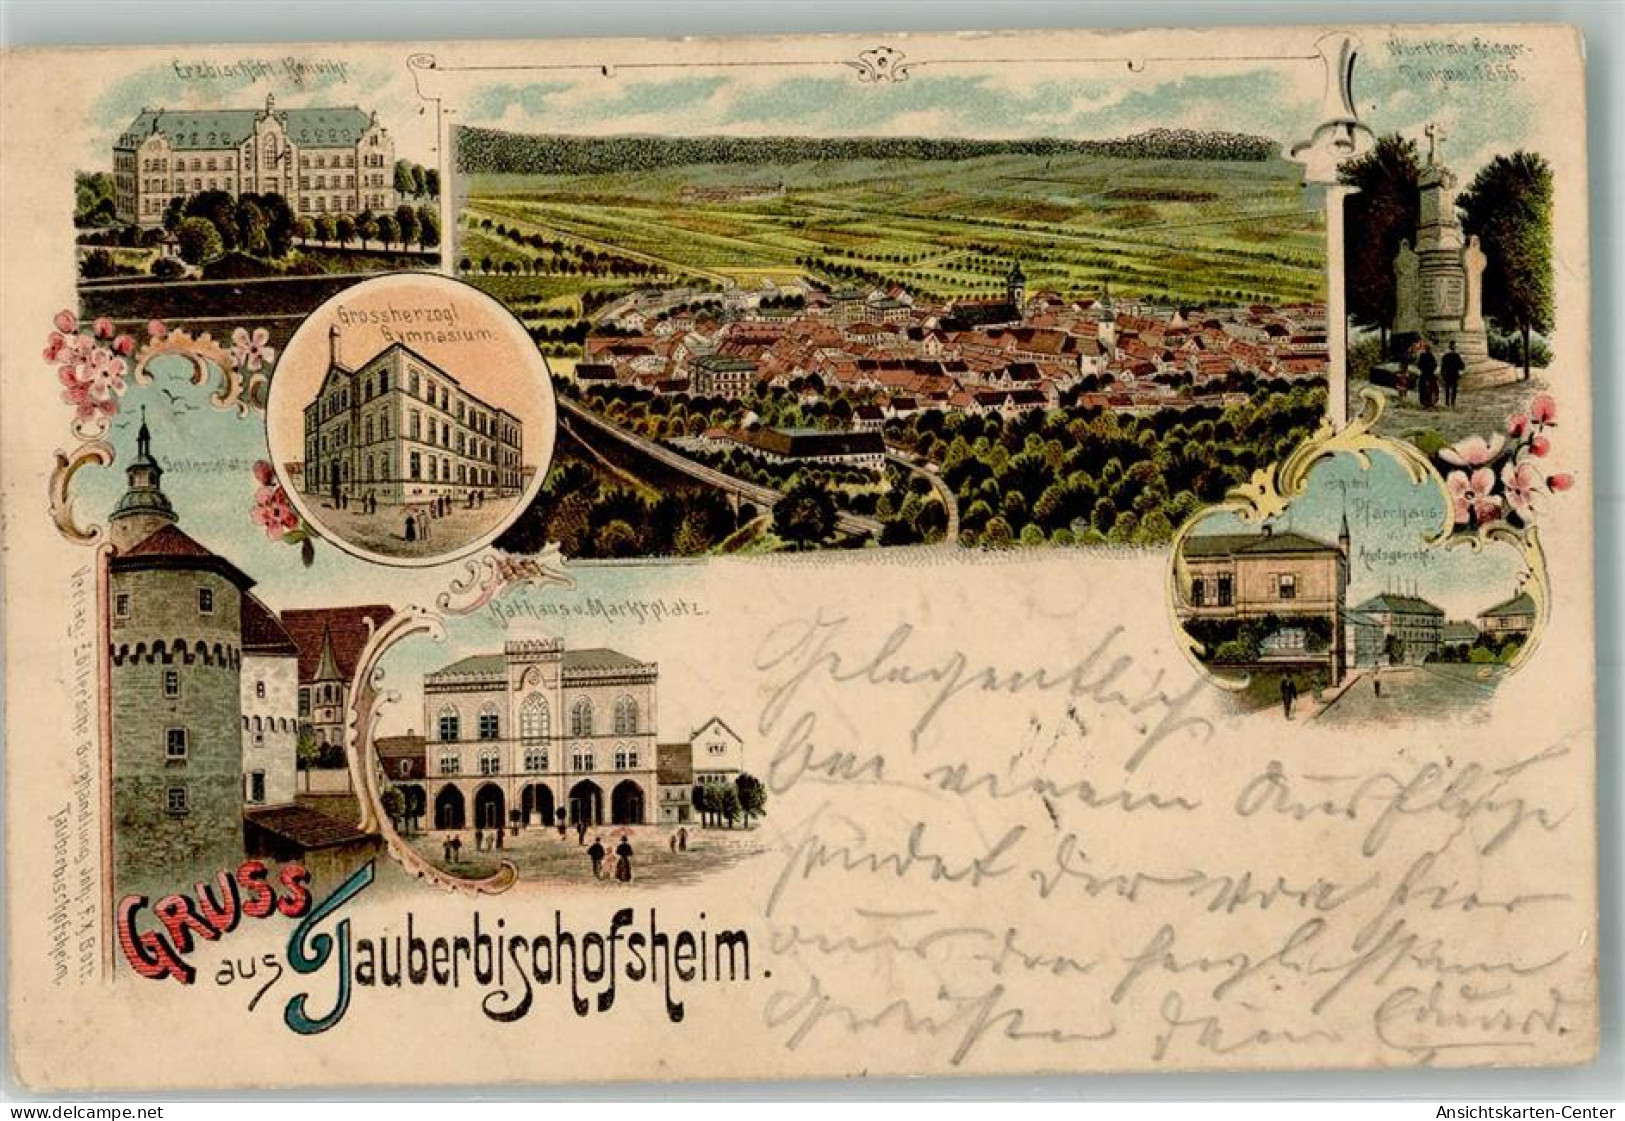 Erzbischöfl. Konvikt.
Württemb. Krieger-
Denkmal 1866.
Grossherzogl.
Gymnasium.
Schlossplatz
Pfarrhaus
u.
Amtsgericht.
Rathaus u. Marktplatz.
Gelegentlich
bei einem Ausfluge
sendet dir von hier
aus den herzlichsten
Grüßen dein Eduard.
GRUSS
aus Tauberbischofsheim.
Verlag: Buchhandlung Inh: F. X. Bott.
Tauberbischofsheim.
delcampe.net
Ansichtskarten-Center